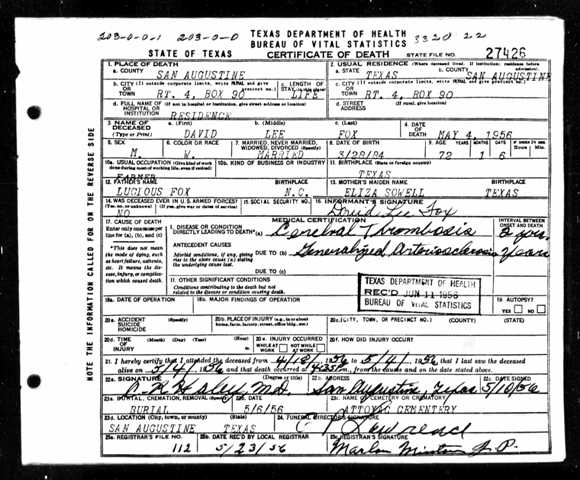 203-0-0-1 203-0-0 TEXAS DEPARTMENT OF HEALTH 3320 22
BUREAU OF VITAL STATISTICS
STATE OF TEXAS CERTIFICATE OF DEATH STATE FILE NO. 27426
1. PLACE OF DEATH 2. USUAL RESIDENCE (Where deceased lived. If institution: residence before admission)
a. COUNTY SAN AUGUSTINE a. STATE TEXAS b. COUNTY SAN AUGUSTINE
b. CITY (If outside corporate limits, write RURAL and give precinct no.) c. LENGTH OF STAY c. CITY (If outside corporate limits, write RURAL and give precinct no.)
OR TOWN RT. 4, BOX 90 LIFE OR TOWN RT. 4, BOX 90
d. FULL NAME OF HOSPITAL OR INSTITUTION (If not in hospital or institution, give street address or location) d. STREET ADDRESS (If rural, give location)
RESIDENCE
3. NAME OF DECEASED a. (First) b. (Middle) c. (Last) 4. DATE OF DEATH
(Type or Print) DAVID LEE FOX MAY 4, 1956
5. SEX 6. COLOR OR RACE 7. MARRIED, NEVER MARRIED, WIDOWED, DIVORCED 8. DATE OF BIRTH 9. AGE YEARS MONTHS DAYS
M. W. MARRIED 3/28/84 72 1 6
10a. USUAL OCCUPATION (Give kind of work done during most of working life, even if retired) 10b. KIND OF BUSINESS OR INDUSTRY 11. BIRTHPLACE (State or foreign country)
FARMER TEXAS
12. FATHER'S NAME BIRTHPLACE 13. MOTHER'S MAIDEN NAME BIRTHPLACE
LUCIOUS FOX N.C. ELIZA SOWELL TEXAS
14. WAS DECEASED EVER IN U.S. ARMED FORCES? 15. SOCIAL SECURITY NO. 16. INFORMANT'S SIGNATURE
NO Lee Fox
17. CAUSE OF DEATH MEDICAL CERTIFICATION INTERVAL BETWEEN ONSET AND DEATH
Enter only one cause per line for (a), (b), and (c)
I. DISEASE OR CONDITION DIRECTLY LEADING TO DEATH (a) Cerebral Thrombosis
*This does not mean the mode of dying, such as heart failure, asthenia, etc. It means the disease, injury, or complication which caused death.
ANTECEDENT CAUSES
Morbid conditions, if any, giving rise to the above cause (a) stating the underlying cause last.
DUE TO (b) Generalized Arteriosclerosis Years
DUE TO (c)
II. OTHER SIGNIFICANT CONDITIONS
Conditions contributing to the death but not related to the disease or condition causing death.
TEXAS DEPARTMENT OF HEALTH
REC'D JUN 11 1956
BUREAU OF VITAL STATISTICS
18a. DATE OF OPERATION 18b. MAJOR FINDINGS OF OPERATION 19. AUTOPSY?
YES NO
20a. ACCIDENT SUICIDE HOMICIDE (Specify) 20b. PLACE OF INJURY (e.g., in or about home, farm, factory, street, office bldg., etc.) 20c. (CITY, TOWN, OR PRECINCT NO.) (COUNTY) (STATE)
20d. TIME OF INJURY (Month) (Day) (Year) (Hour) 20e. INJURY OCCURRED WHILE AT WORK NOT WHILE AT WORK 20f. HOW DID INJURY OCCUR?
21. I hereby certify that I attended the deceased from 56 to 5/4/ 1956 that I last saw the deceased
alive on 5/4/ 1956 and that death occurred at m., from the causes and on the date stated above.
22a. SIGNATURE (Degree or title) 22b. ADDRESS 22c. DATE SIGNED
M.D. San Augustine, Texas 5/10/56
23a. BURIAL, CREMATION, REMOVAL (Specify) 23b. DATE 23c. NAME OF CEMETERY OR CREMATORY
BURIAL 5/6/56 ATTOYAC CEMENTERY
23d. LOCATION (City, town, or county) (State) 24. FUNERAL DIRECTOR'S SIGNATURE
SAN AUGUSTINE TEXAS
25a. REGISTRAR'S FILE NO. 25b. DATE REC'D BY LOCAL REGISTRAR 25c. REGISTRAR'S SIGNATURE
112 5/23/56 J.P.
NOTE THE INFORMATION CALLED FOR ON THE REVERSE SIDE